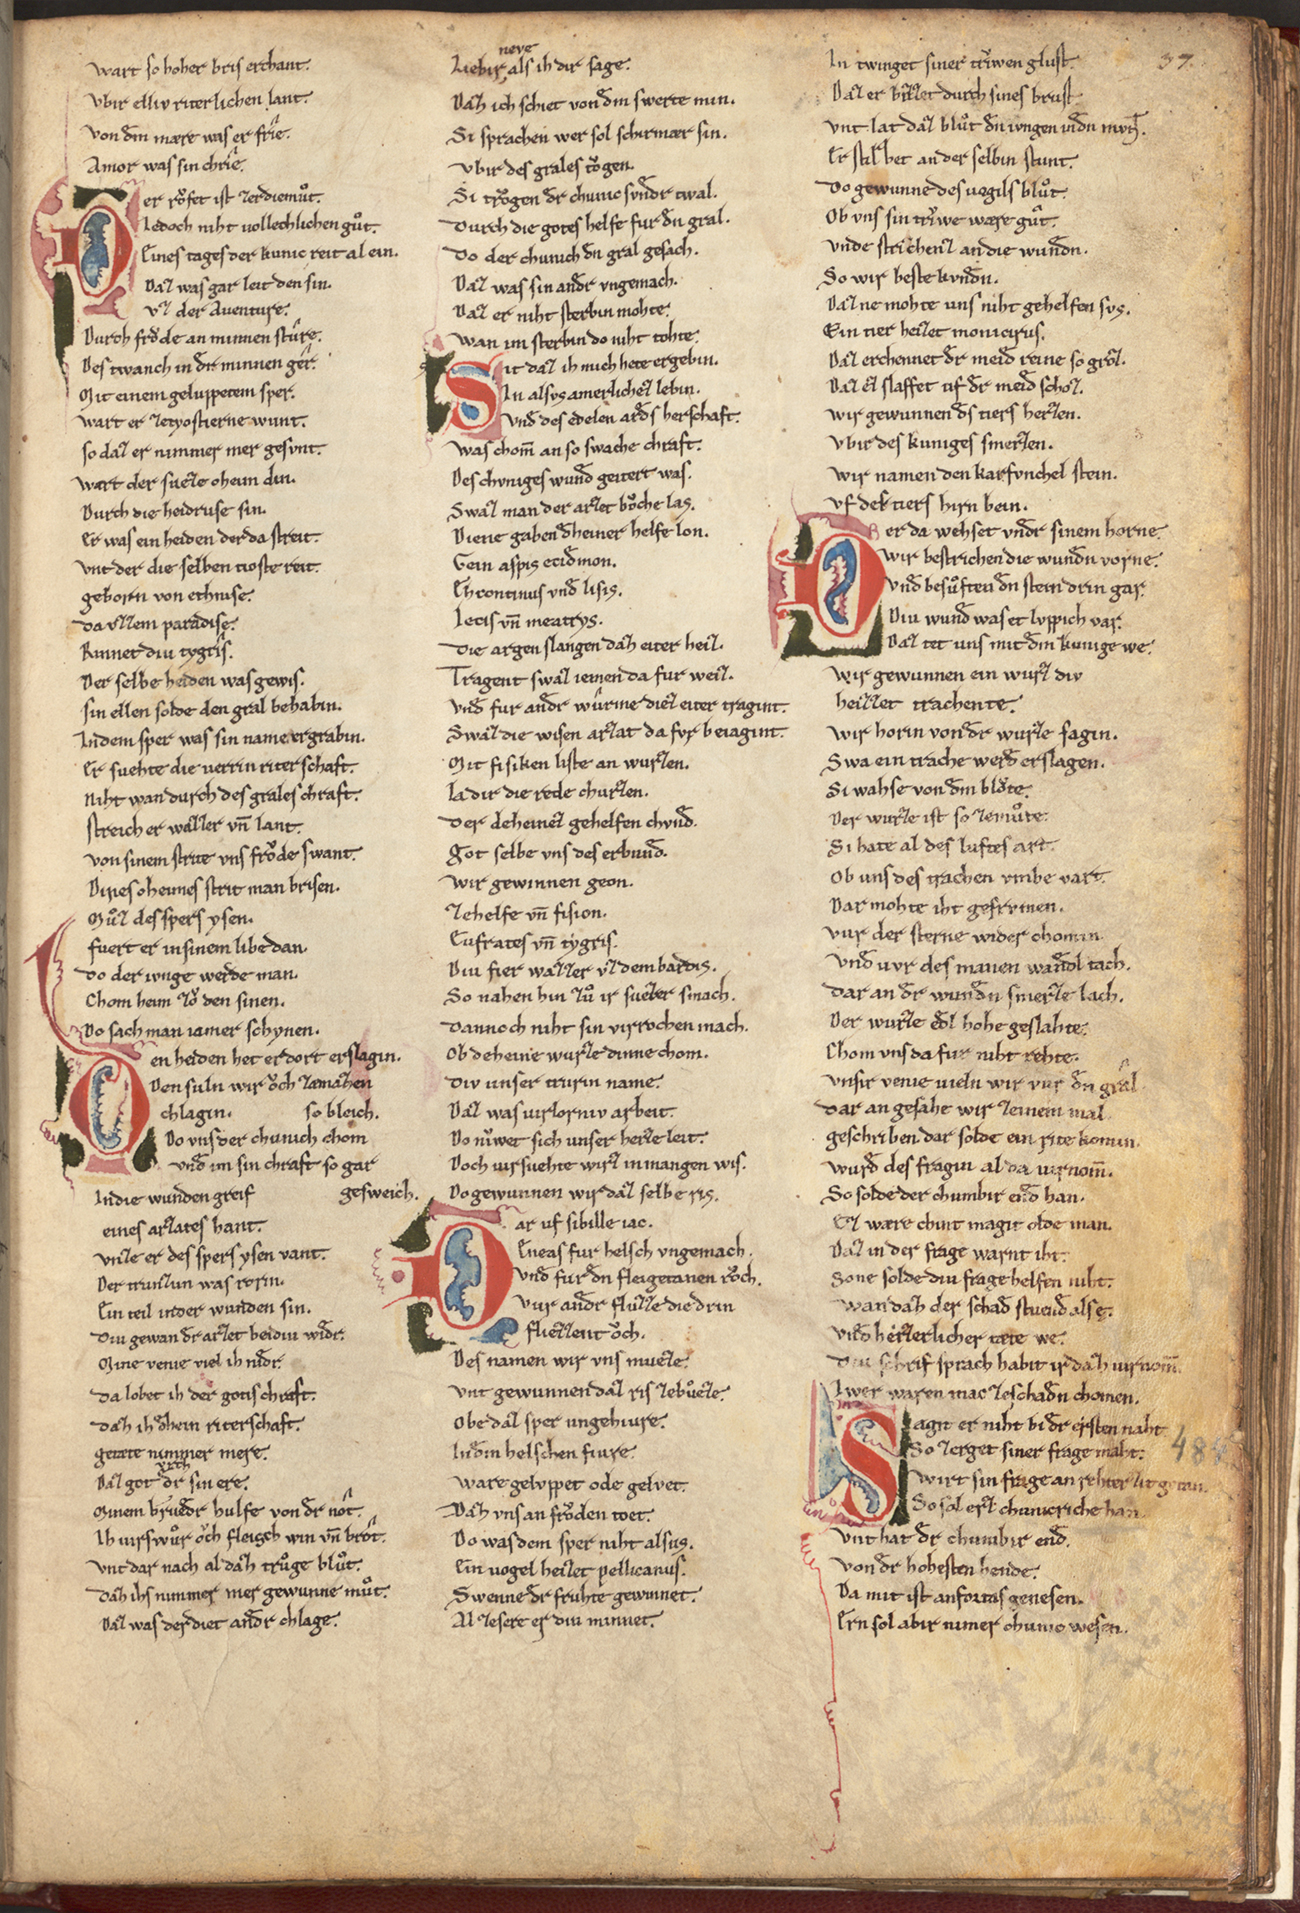 wart so hoher bris erchant.
vbir elliv riterlichen lant.
von dͤm mære was er frîe.
Amor was sin chrîe.
Der rv̊fet ist zerdiemůt.
Iedoch niht vollechlichen gůt.
Eines tages der kunic reit al ein.
Daz was gar leit den sin.
vz der Auenture.
Durch frǒde an minnen stûre.
Des twanch in dͤr minnen gêr.
Mit einem geluppetem sper.
wart er zetyostierne wunt.
so daz er nimmer mer gesvnt.
wart der sueze oheim din.
Durch die heidruse sin.
Er was ein heiden der da streit.
vnt der die selben tioste reit.
geborn von ethnise.
da vzzem paradise.
Rinnet div tygris.
Der selbe heiden was gewis.
sin ellen solde den gral behabin.
Indem sper was sin name ergrabin.
Er suehte die verrin riterschaft.
Niht wan durch des grales chraft.
streich er wazzer vn̄ lant.
von sinem strite vns frǒde swant.
Dines oheimes strit man brisen.
Můz des spers ysen.
fuert er insinem libe dan.
Do der ivnge werde man.
Chom heim zǒ den sinen.
Do sach man iamer schynen.
Den heiden het er dort erslagin.
Den suln wir ǒch zemazen
chlagin. so bleich.
Do vns der chunich chom
vnd im sin chraft so gar
Indie wunden greif gesweich.
eines arzates hant.
vnze er des spers ysen vant.
Der trunzun was rorin.
Ein teil inder wunden sin.
Diu gewan dͤr arzet beidiu widͤr.
Mine venie viel ih nidͤr.
Da lobet ih der gotis chraft.
daz ih dͤhein riterschaft.
getæte nimmer mere.
Daz got dvrch sin ere.
Minem brůdͤr hulfe von dͤr nôt.
Ih virswůr ǒch fleisch win vn̄ brôt.
vnt dar nach al daz trůge blůt.
daz ihs nimmer mer gewunne můt.
Daz was der diet andͤr chlage.
Liebir neve als ih dir sage.
Daz ich schiet von dͤm swerte min.
Si sprachen wer sol schirmær sin.
vbir des grales tǒgen.
Si trǒgen dͤr chunic svndͤr twal.
Durch die gotes helfe fur dͤn gral.
Do der chunich dͤn gral gesach.
Daz was sin andͤr vngemach.
Daz er niht sterbin mohte.
wan im sterbin do niht tohte.
Sit daz ih mich hete ergebin.
In alsvs amerlichez lebin.
vnd des edelen ards herschaft.
Was chom̄ an so swache chraft.
Des chvniges wund geitert was.
Swaz man der arzet bǒche las.
Diene gaben dͤheiner helfe lon.
Gein aspis ecidͤmon.
Ehcontinus vnd lisis.
Iecis vn̄ meatrys.
Die argen slangen daz eiter heiz.
Tragent swaz iemen da fur weiz.
vnd fur andͤr wûrme diez eiter tragint.
Swaz die wisen arzat da fvr beiagint.
Mit fisiken liste an wurzen.
la dir die rede churzen.
Der deheinez gehelfen chvnd.
Got selbe vns des erbund.
wir gewinnen geon.
zehelfe vn̄ fision.
Eufrates vn̄ tygris.
Diu fier wazzer vz dem bardis.
So nahen hin zů ir suezer smach.
Dannoch niht sin virrochen mach.
Ob deheine wurze dinne chom.
Div unser trurin name.
Daz was virlorniv arbeit.
Do nůwet sich unser herze leit.
Doch virsuehte wirz in mangen wis.
Do gewunnen wir daz selbe ris.
Dar uf sibille iac.
Eneas fur helsch vngemach.
vnd fur dͤn flegetanen rǒch.
vur andͤr fluzze die drin
fliezzent ǒch.
Des namen wir vns mueze.
vnt gewunnen daz ris zebůeze.
Obe daz sper ungehiure.
In dͤm helschen fiure.
ware gelvppet ode gelvet.
Daz vns an frǒden toet.
Do was dem sper niht alsus.
Ein vogel heizet pellicanus.
Swenne dͤr fruhte gewinnet.
Al zesere er diu minnet.
In twinget siner trîwen glust.
Daz er bizzet durch sines brust.
vnt lat daz blůt dͤn ivngen indͤn mvnd.
Er stirbet an der selbin stunt.
Do gewunne des uogils blůt.
Ob vns sin trîwe wære gůt.
vnde strichenz an die wundͤn.
So wir beste kvndͤn.
Daz ne mohte uns niht gehelfen svs.
Ein tier heizet monicirus.
Daz erchennet dͤr meid reine so grôz.
Daz ez slaffet uf dͤr meid schôz.
wir gewunnen ds tiers herzen.
vbir des kuniges smerzen.
wir namen den karfvnchel stein.
vf des tiers hirn bein.
Der da wehset vndͤr sinem horne.
wir bestrichen die wundͤn vorne.
vnd besůften dͤn stein drin gar.
Diu wund was et lvppich var.
Daz tet uns mit dͤm kunige we.
wir gewunnen ein wurz div
heizzet trachente.
wir horin von dͤr wurze sagin.
Swa ein trache werd erslagen.
Si wahse von dͤm blůte.
Der wurze ist so zemůte.
Si hate al des luftes art.
Ob uns des trachen vmbe vart.
Dar mohte iht gefrvmen.
vur der sterne wider chomin.
vnd vvr des manen wandͤl tach.
dar an dͤr wundͤn smerze lach.
Der wurze edͤl hohe geslahte.
Chom vns da fur niht rehte.
vnsir venie vieln wir vur dͤn grâl.
dar an gesahe wir zeinem mal.
geschriben dar solde ein rite komin.
wurd des fragin alda virnom̄.
So solde der chumbir end han.
Ez wære chint magit olde man.
Daz in der frage warnt iht.
Sone solde diu frage helfen niht.
wan daz der schad stuend als e.
vnd herzerlicher tæte we.
Diu schrift sprach habit ir daz virnom̄.
Iwer waren mac zeschadn chomen.
Fragit er niht bi dͤr ersten naht
So zerget siner frage maht.
wirt sin frage an rehter zit getan.
So sol erz chunicriche han.
vnt hat dͤr chumbir end.
von dͤr hohesten hende.
Da mit ist anfortas genesen.
Ern sol abir nimer chunic wesen.
37.